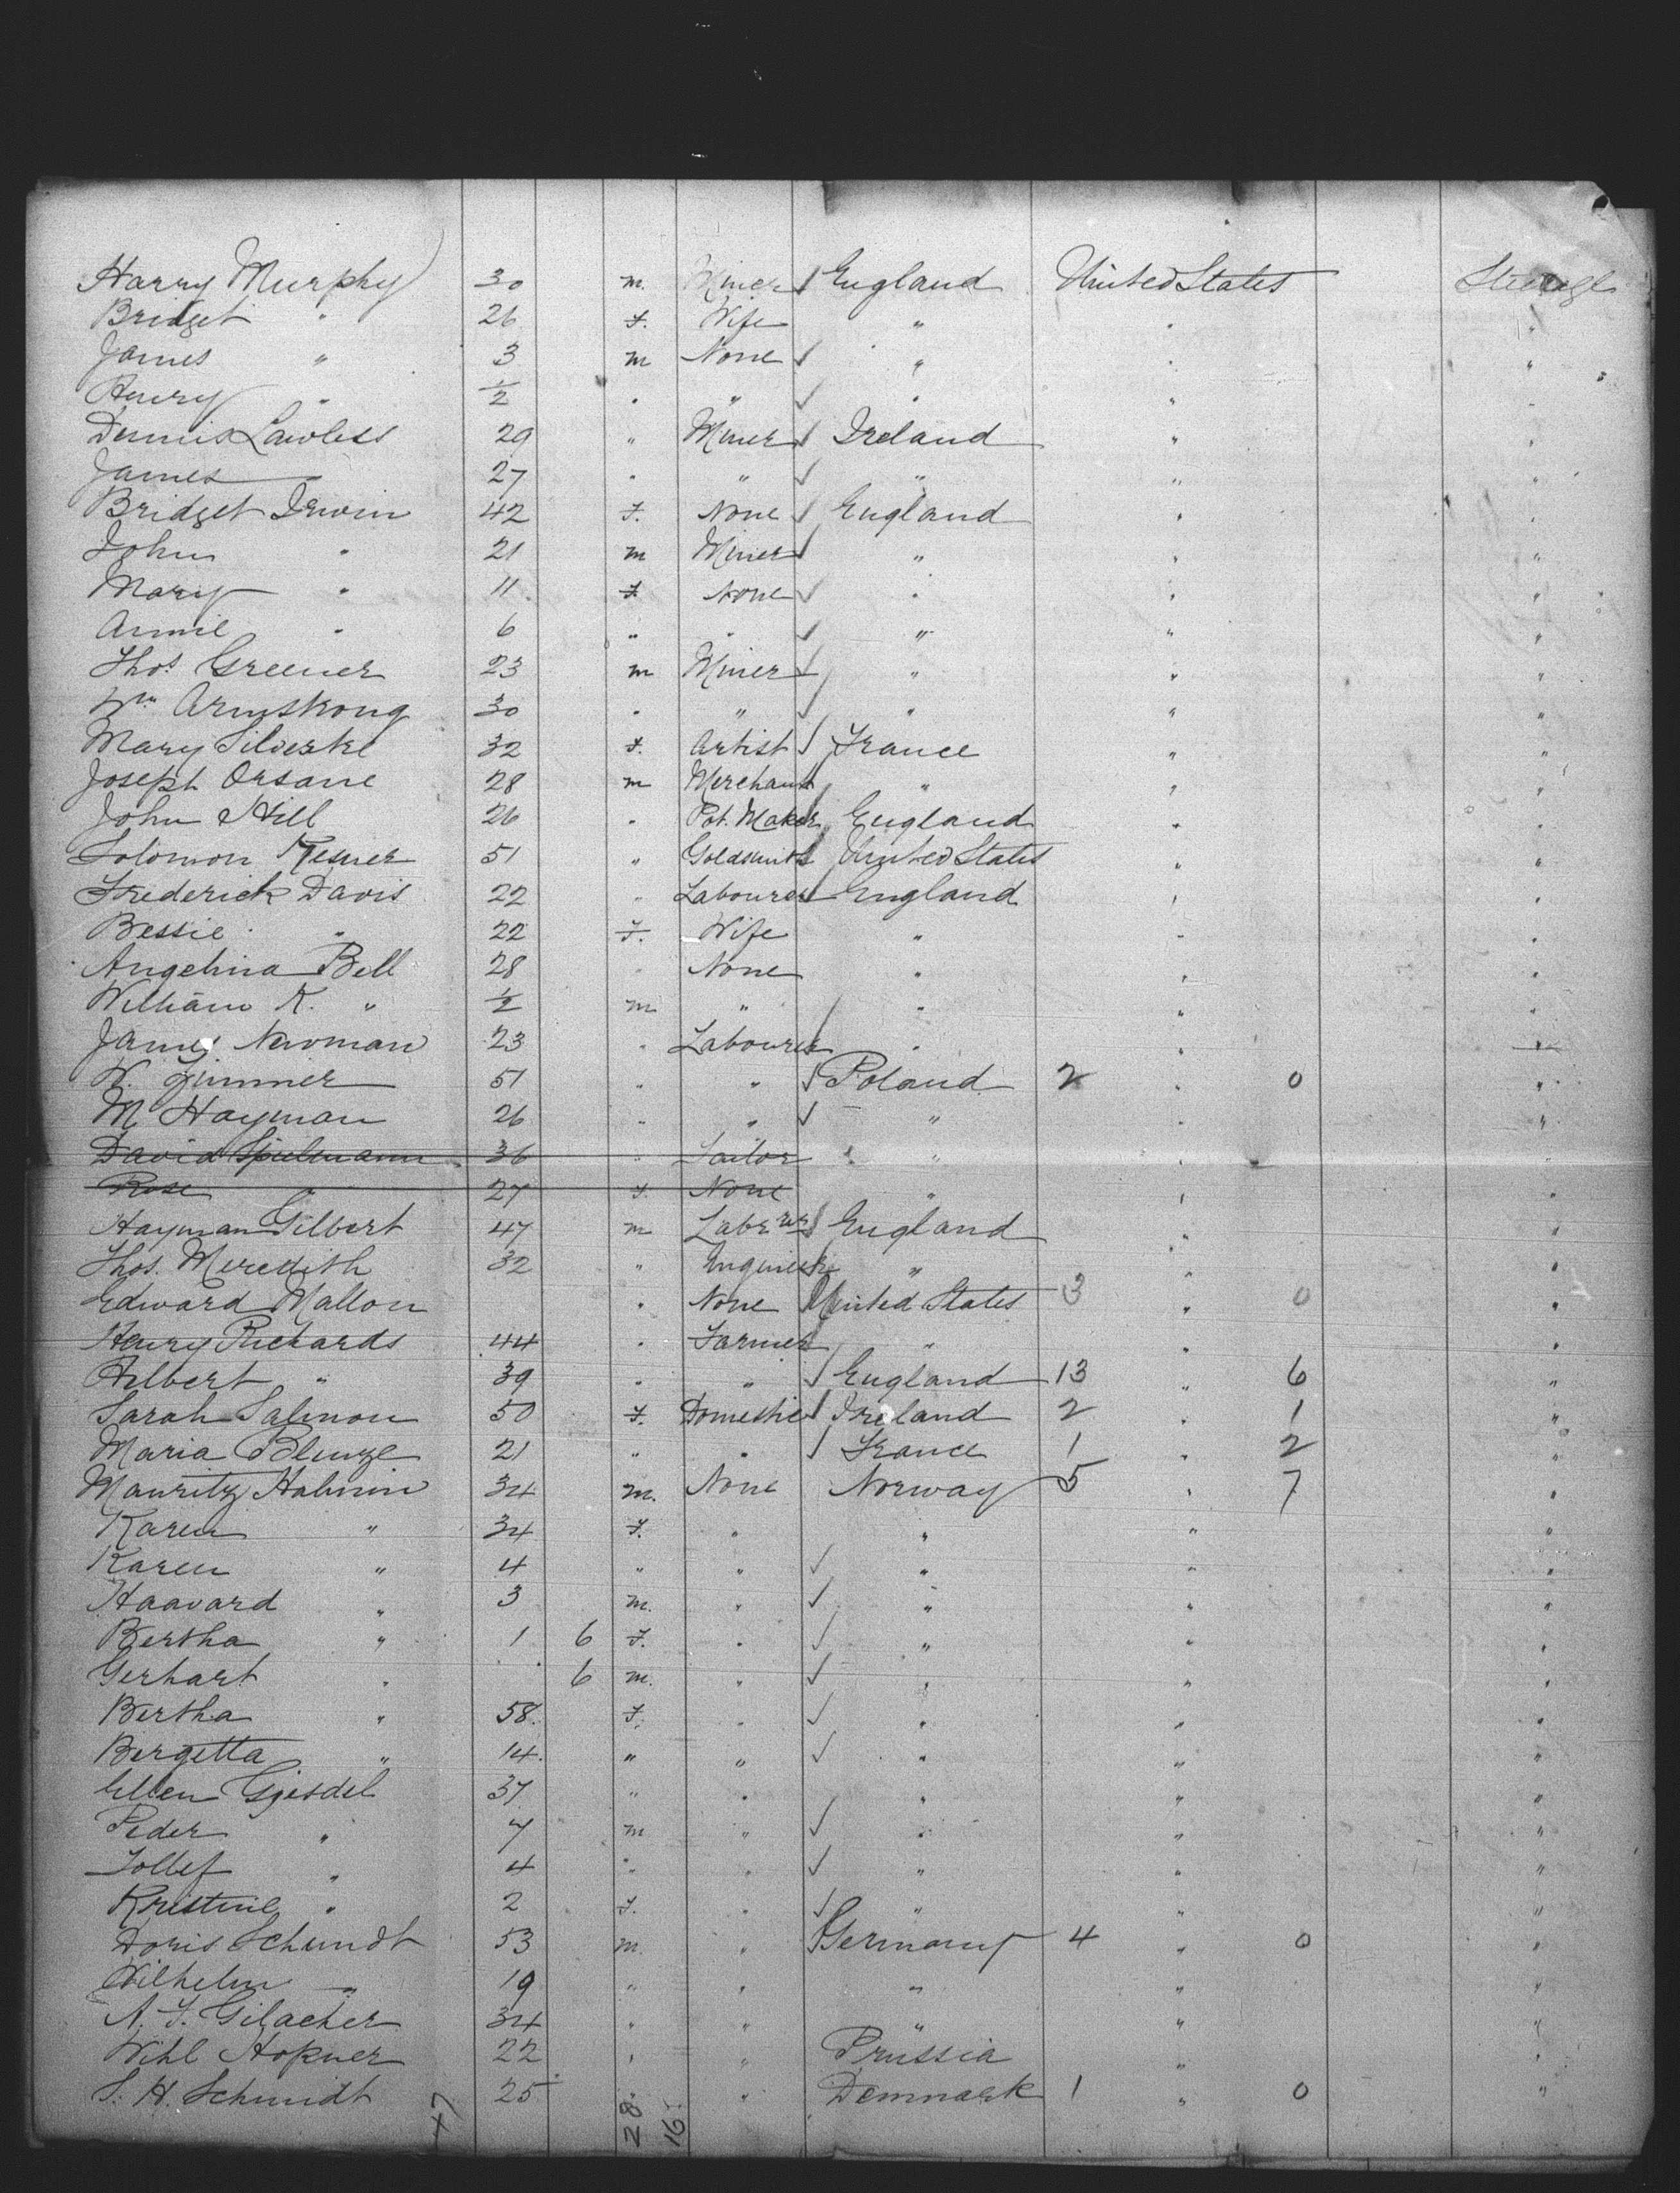 Harry Murphy 30 m. Miner England United States Steerage
Bridget " 26 f. Wife " " "
James " 3 m None " " "
Henry " 1/2 " " " " "
Dennis Lawless 29 " Miner Ireland " "
James " 27 " " " " "
Bridget Irwin 42 f. None England " "
John " 21 m Miner " " "
Mary " 11 f None " " "
Annie " 6 " " " " "
Thos. Greener 23 m Miner " " "
Wm Armstrong 30 " " " " "
Mary 32 f. Artist France " "
Joseph Orsane 28 m Merchant " " "
John Hill 26 " Pot. Maker England " "
Solomon 51 " Goldsmith United States " "
Frederick Davis 22 " Labourer England " "
Bessie " 22 f. Wife " " "
Angelina Bell 28 " None " " "
William K. " 1/2 m " " " "
James Newman 23 " Labourer " " "
W. 51 " " Poland 2 " 0 "
M Hayman 26 " " " " "
David Spielmann 36 " Tailor " " "
Rose " 27 f. None " " "
Hayman Gilbert 47 m Labrer England " "
Thos. Meredith 32 " Engineer " " "
Edward Mallon " None United States 3 " 0 "
Henry Richards 44 " Farmer " " "
Albert " 39 " " England 13 " 6 "
Sarah Salmon 50 f. Domestic Ireland 2 " 1 "
Maria 21 " " France 1 " 2 "
Mauritz 34 m. None Norway 5 " 7 "
Karen " 34 f. " " " "
Karen " 4 " " " " "
Haavard " 3 m. " " " "
Bertha " 1 6 f. " " " "
Gerhart " 6 m. " " " "
Bertha " 58 f. " " " "
Bergetta " 14 " " " " "
Ellen Gjesdel 37 " " " " "
Peder " 7 m " " " "
Tollef " 4 " " " " "
Kristine " 2 f. " " " "
Doris Schmidt 53 m. " Germany 4 " 0 "
Wilhelm " 19 " " " " "
A. F. Gilacher 34 " " " " "
Wihl Hopner 22 " " Prussia " "
S. H. Schmidt 25 " " Denmark 1 " 0 "
47 28 16